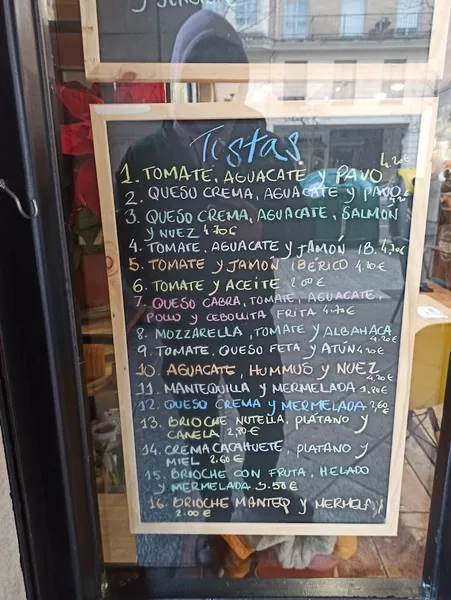 Tostas
1. TOMATE, AGUACATE Y PAVO 4.20€
2. QUESO CREMA, AGUACATE Y PAVO
3. QUESO CREMA, AGUACATE, SALMON
Y NUEZ 4.70€
4. TOMATE, AGUACATE Y JAMÓN IB. 4.70€
5. TOMATE Y JAMÓN IBÉRICO 4.20€
6. TOMATE Y ACEITE 2.00€
7. QUESO CABRA, TOMATE, AGUACATE,
POLLO Y CEBOLLITA FRITA 4.70€
8. MOZZARELLA, TOMATE Y ALBAHACA
4.20€
9. TOMATE, QUESO FETA Y ATÚN 4.20€
10. AGUACATE, HUMMUS Y NUEZ
4.20€
11. MANTEQUILLA Y MERMELADA 1.80€
12. QUESO CREMA Y MERMELADA 2,60€
13. BRIOCHE NUTELLA, PLÁTANO Y
CANELA 2,80€
14. CREMA CACAHUETE, PLATANO Y
MIEL 2.60€
15. BRIOCHE CON FRUTA, HELADO
Y MERMELADA 3.50€
16. BRIOCHE MANTEQ Y MERMELA
2.00€